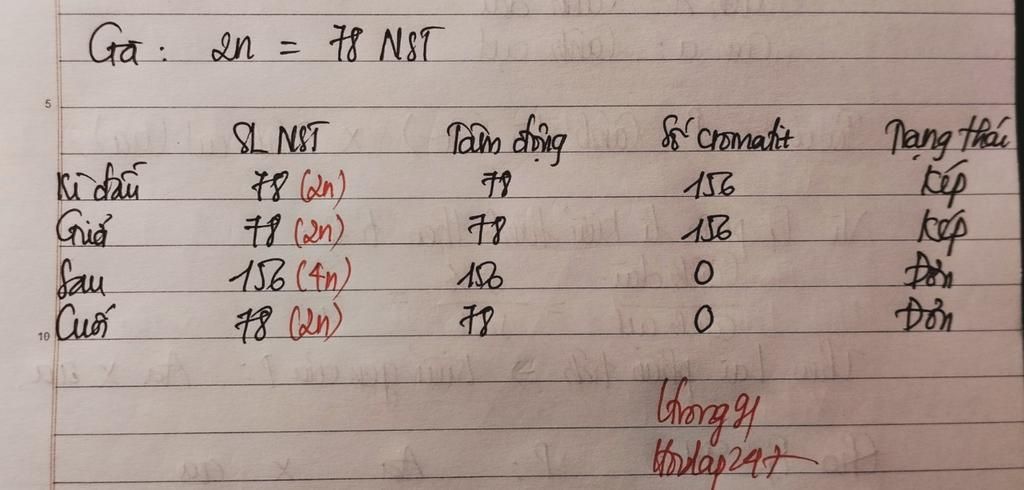 Gà: 2n = 78 NST
5
SL NST Tâm động Số cromatit Trạng thái
Kì đầu 78 (2n) 78 156 Kép
Giữa 78 (2n) 78 156 Kép
Sau 156 (4n) 156 0 Đơn
Cuối 78 (2n) 78 0 Đơn
10
hoidap247